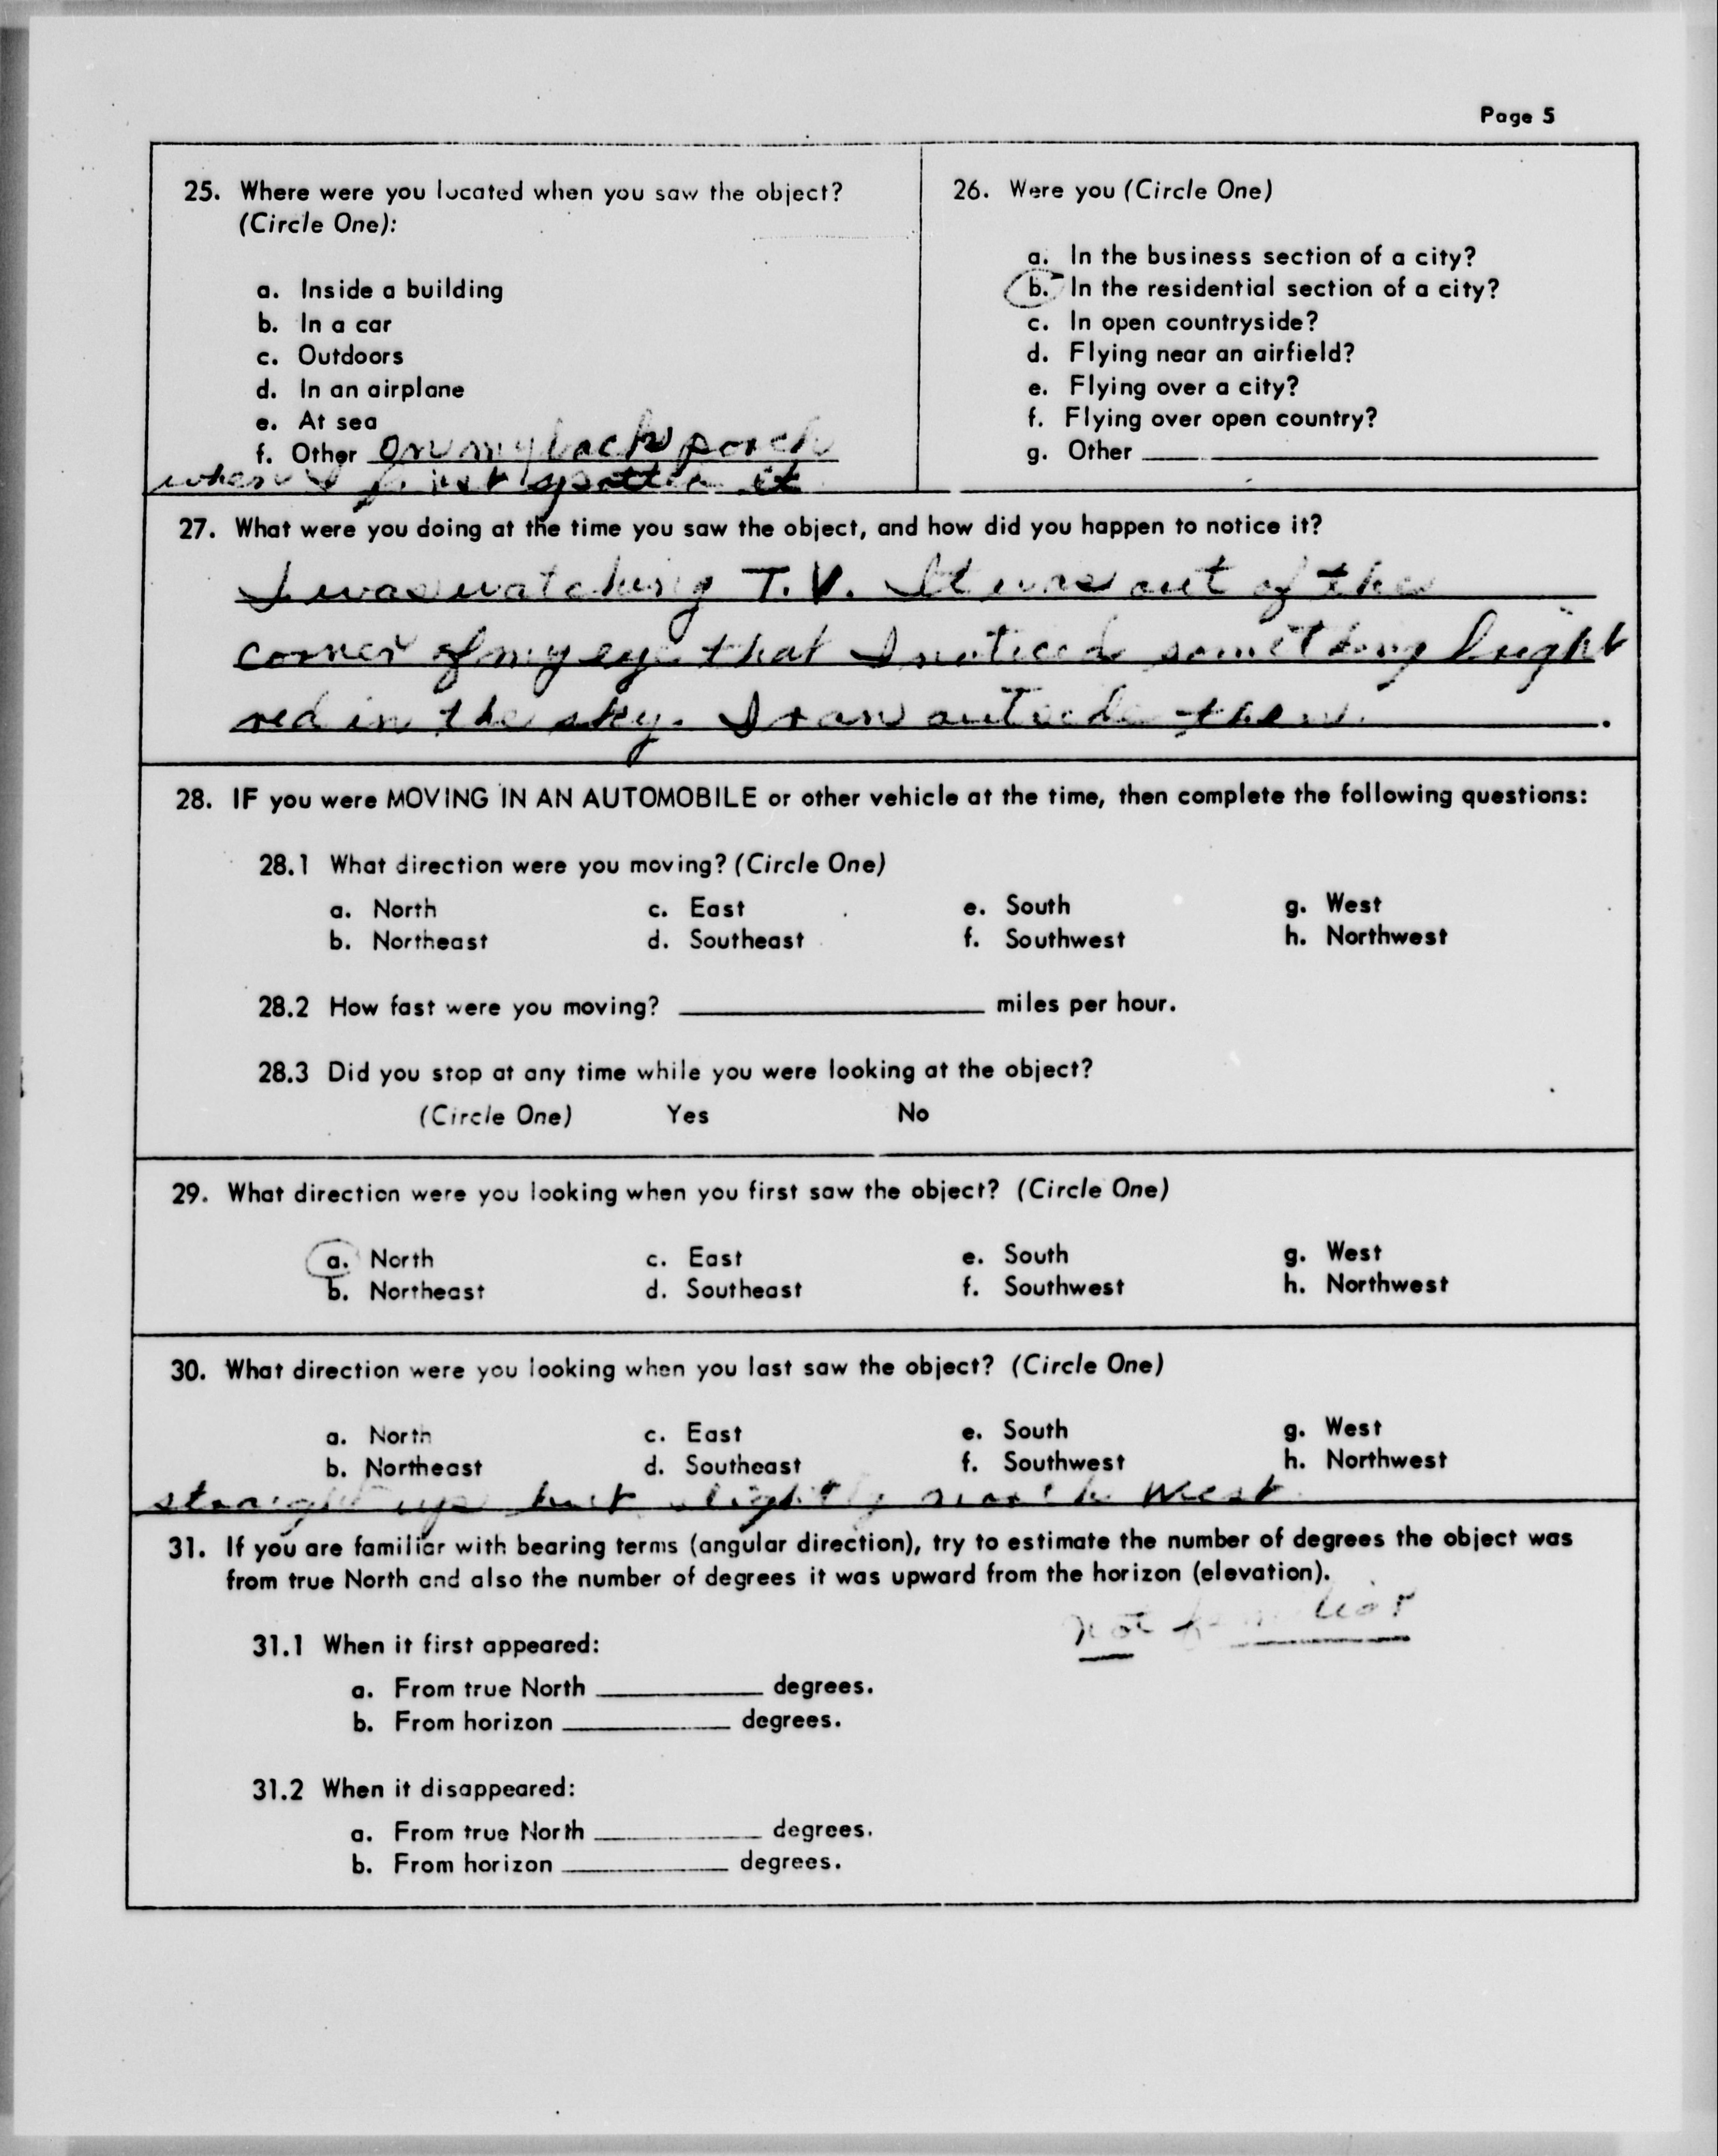 Page 5
25. Where were you located when you saw the object?
(Circle One):
a. Inside a building
b. In a car
c. Outdoors
d. In an airplane
e. At sea
f. Other on my back porch
when I first spotted it
26. Were you (Circle One)
a. In the business section of a city?
b. In the residential section of a city?
c. In open countryside?
d. Flying near an airfield?
e. Flying over a city?
f. Flying over open country?
g. Other
27. What were you doing at the time you saw the object, and how did you happen to notice it?
I was watching T.V. It was out of the
corner of my eye that I noticed something bright
red in the sky. I ran outside then.
28. IF you were MOVING IN AN AUTOMOBILE or other vehicle at the time, then complete the following questions:
28.1 What direction were you moving? (Circle One)
a. North c. East e. South g. West
b. Northeast d. Southeast f. Southwest h. Northwest
28.2 How fast were you moving? miles per hour.
28.3 Did you stop at any time while you were looking at the object?
(Circle One) Yes No
29. What direction were you looking when you first saw the object? (Circle One)
a. North c. East e. South g. West
b. Northeast d. Southeast f. Southwest h. Northwest
30. What direction were you looking when you last saw the object? (Circle One)
a. North c. East e. South g. West
b. Northeast d. Southeast f. Southwest h. Northwest
straight up but slightly north west
31. If you are familiar with bearing terms (angular direction), try to estimate the number of degrees the object was
from true North and also the number of degrees it was upward from the horizon (elevation).
not familiar
31.1 When it first appeared:
a. From true North degrees.
b. From horizon degrees.
31.2 When it disappeared:
a. From true North degrees.
b. From horizon degrees.